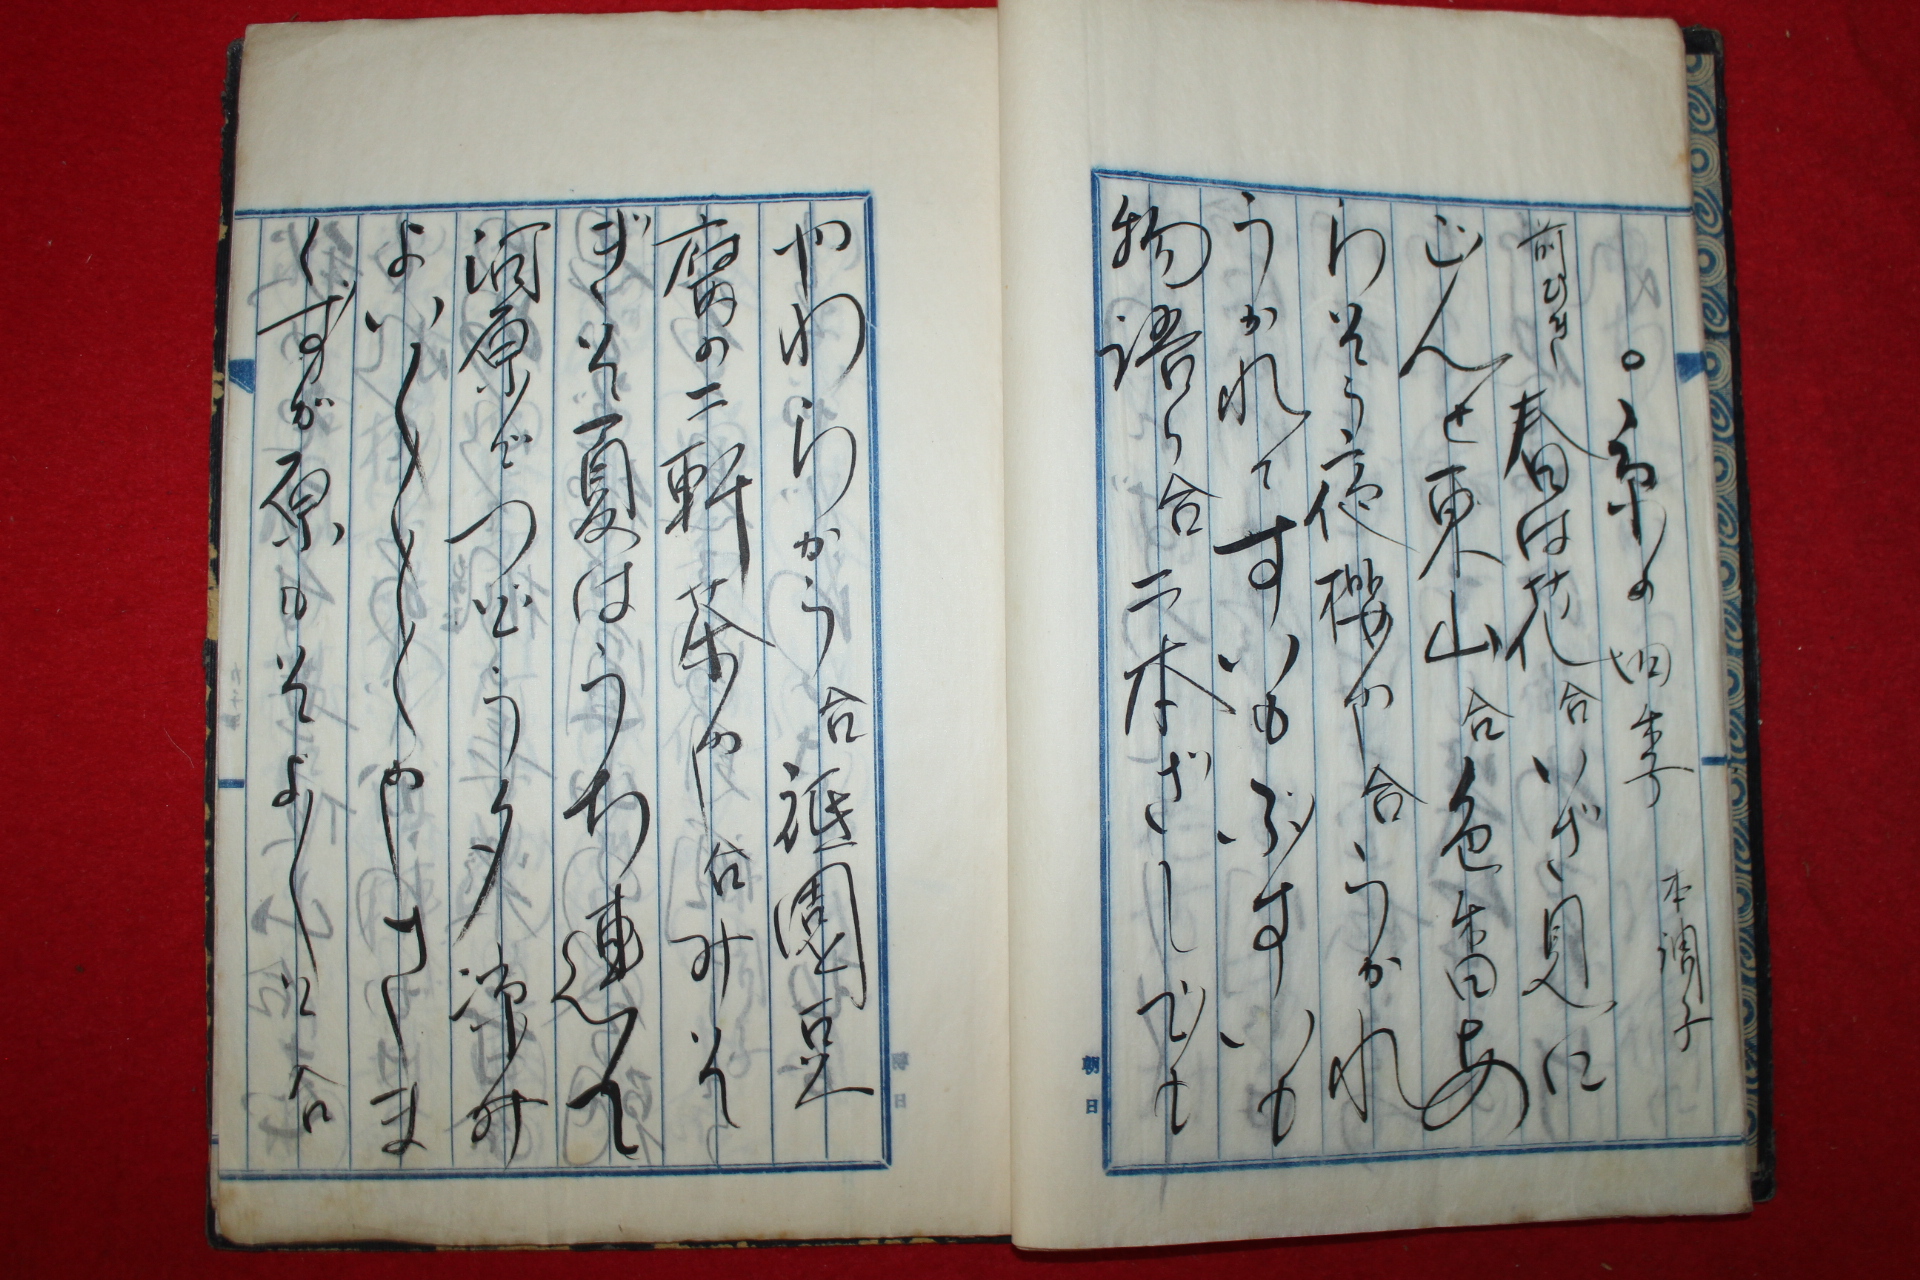 ○京の四季 本調子
前びき 春は花 合 いざ見に
ごんせ東山 合 色香あ
らそう夜櫻や 合 うかれ
うかれてすいもぶすいも
物語り 合 二本ざしでも
やわらかう 合 祗園豆
腐の二軒茶や 合 みそ
ぎぞ夏はうち連れて
河原でつどう夕涼み
よい〱〱〱やさま
くずが原にそよ〱と 合
朝日